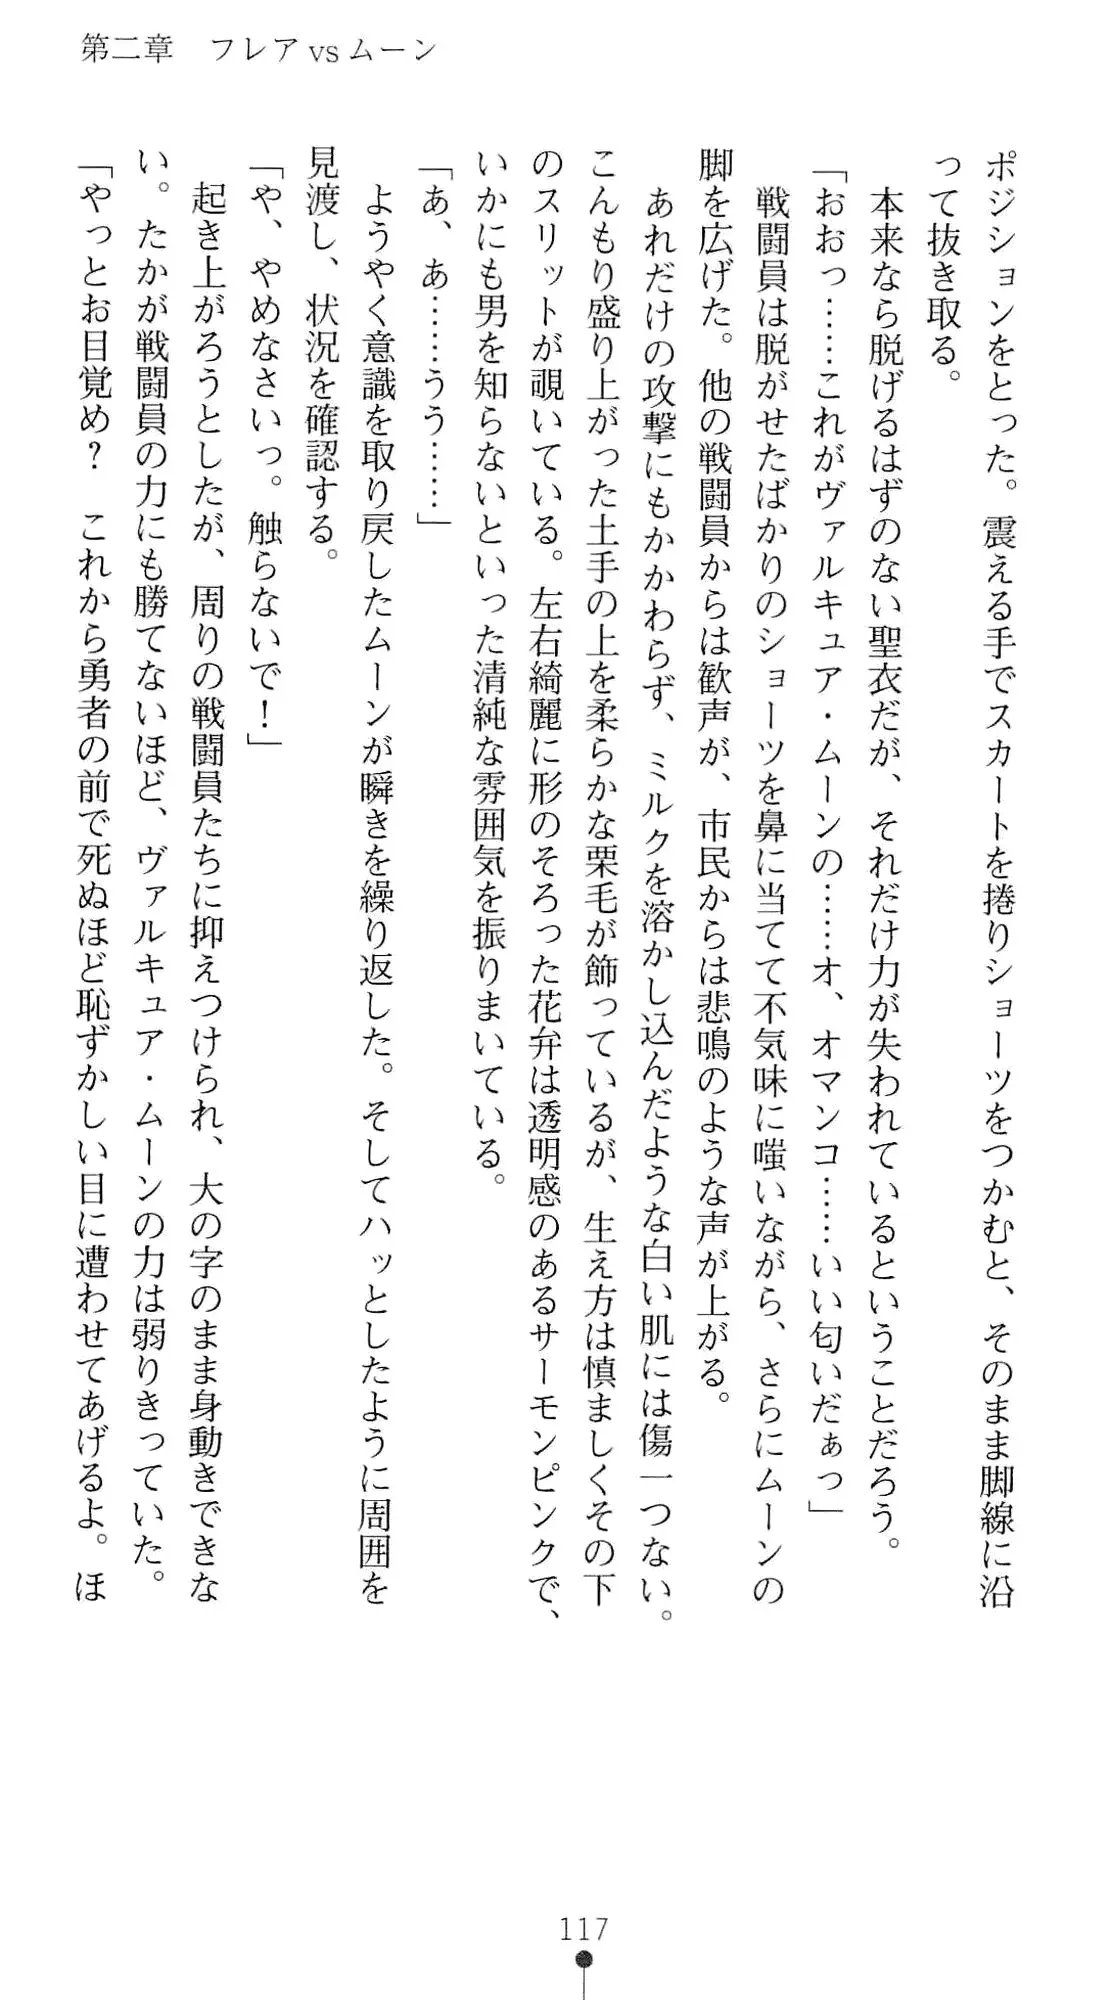 第二章　フレアvsムーン
ポジションをとった。震える手でスカートを捲りショーツをつかむと、そのまま脚線に沿
って抜き取る。
　本来なら脱げるはずのない聖衣だが、それだけ力が失われているということだろう。
「おおっ……これがヴァルキュア・ムーンの……オ、オマンコ……いい匂いだぁっ」
　戦闘員は脱がせたばかりのショーツを鼻に当てて不気味に嗤いながら、さらにムーンの
脚を広げた。他の戦闘員からは歓声が、市民からは悲鳴のような声が上がる。
　あれだけの攻撃にもかかわらず、ミルクを溶かし込んだような白い肌には傷一つない。
こんもり盛り上がった土手の上を柔らかな栗毛が飾っているが、生え方は慎ましくその下
のスリットが覗いている。左右綺麗に形のそろった花弁は透明感のあるサーモンピンクで、
いかにも男を知らないといった清純な雰囲気を振りまいている。
「あ、あ……うう……」
　ようやく意識を取り戻したムーンが瞬きを繰り返した。そしてハッとしたように周囲を
見渡し、状況を確認する。
「や、やめなさいっ。触らないで！」
　起き上がろうとしたが、周りの戦闘員たちに抑えつけられ、大の字のまま身動きできな
い。たかが戦闘員の力にも勝てないほど、ヴァルキュア・ムーンの力は弱りきっていた。
「やっとお目覚め？　これから勇者の前で死ぬほど恥ずかしい目に遭わせてあげるよ。ほ
117